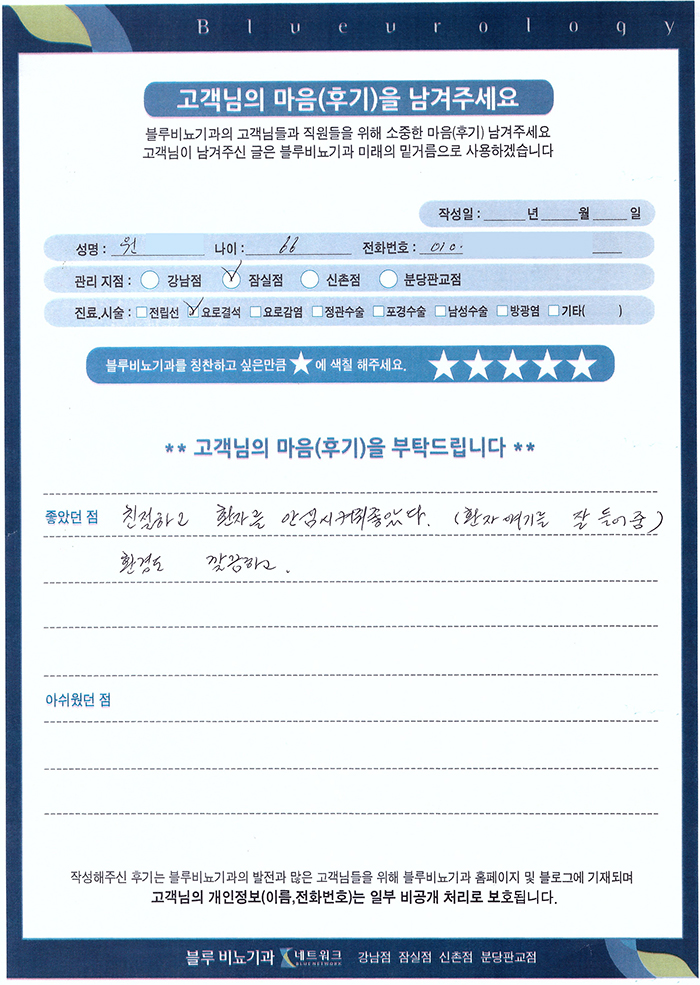 Blueurology
고객님의 마음(후기)을 남겨주세요
블루비뇨기과의 고객님들과 직원들을 위해 소중한 마음(후기) 남겨주세요
고객님이 남겨주신 글은 블루비뇨기과 미래의 밑거름으로 사용하겠습니다
작성일 : ______년 _____월 _____일
성명 : 원 나이 : 66 전화번호 : 010.
관리 지점 : 강남점 잠실점 신촌점 분당판교점
진료.시술 : 전립선 요로결석 요로감염 정관수술 포경수술 남성수술 방광염 기타( )
블루비뇨기과를 칭찬하고 싶은만큼 ★에 색칠 해주세요. ★★★★★
** 고객님의 마음(후기)을 부탁드립니다 **
좋았던 점 친절하고 환자를 안심시켜줘좋았다. (환자 얘기를 잘 들어줌)
환경도 깔끔하고.
아쉬웠던 점
작성해주신 후기는 블루비뇨기과의 발전과 많은 고객님들을 위해 블루비뇨기과 홈페이지 및 블로그에 기재되며
고객님의 개인정보(이름,전화번호)는 일부 비공개 처리로 보호됩니다.
블루 비뇨기과 네트워크 BLUENETWORK 강남점 잠실점 신촌점 분당판교점